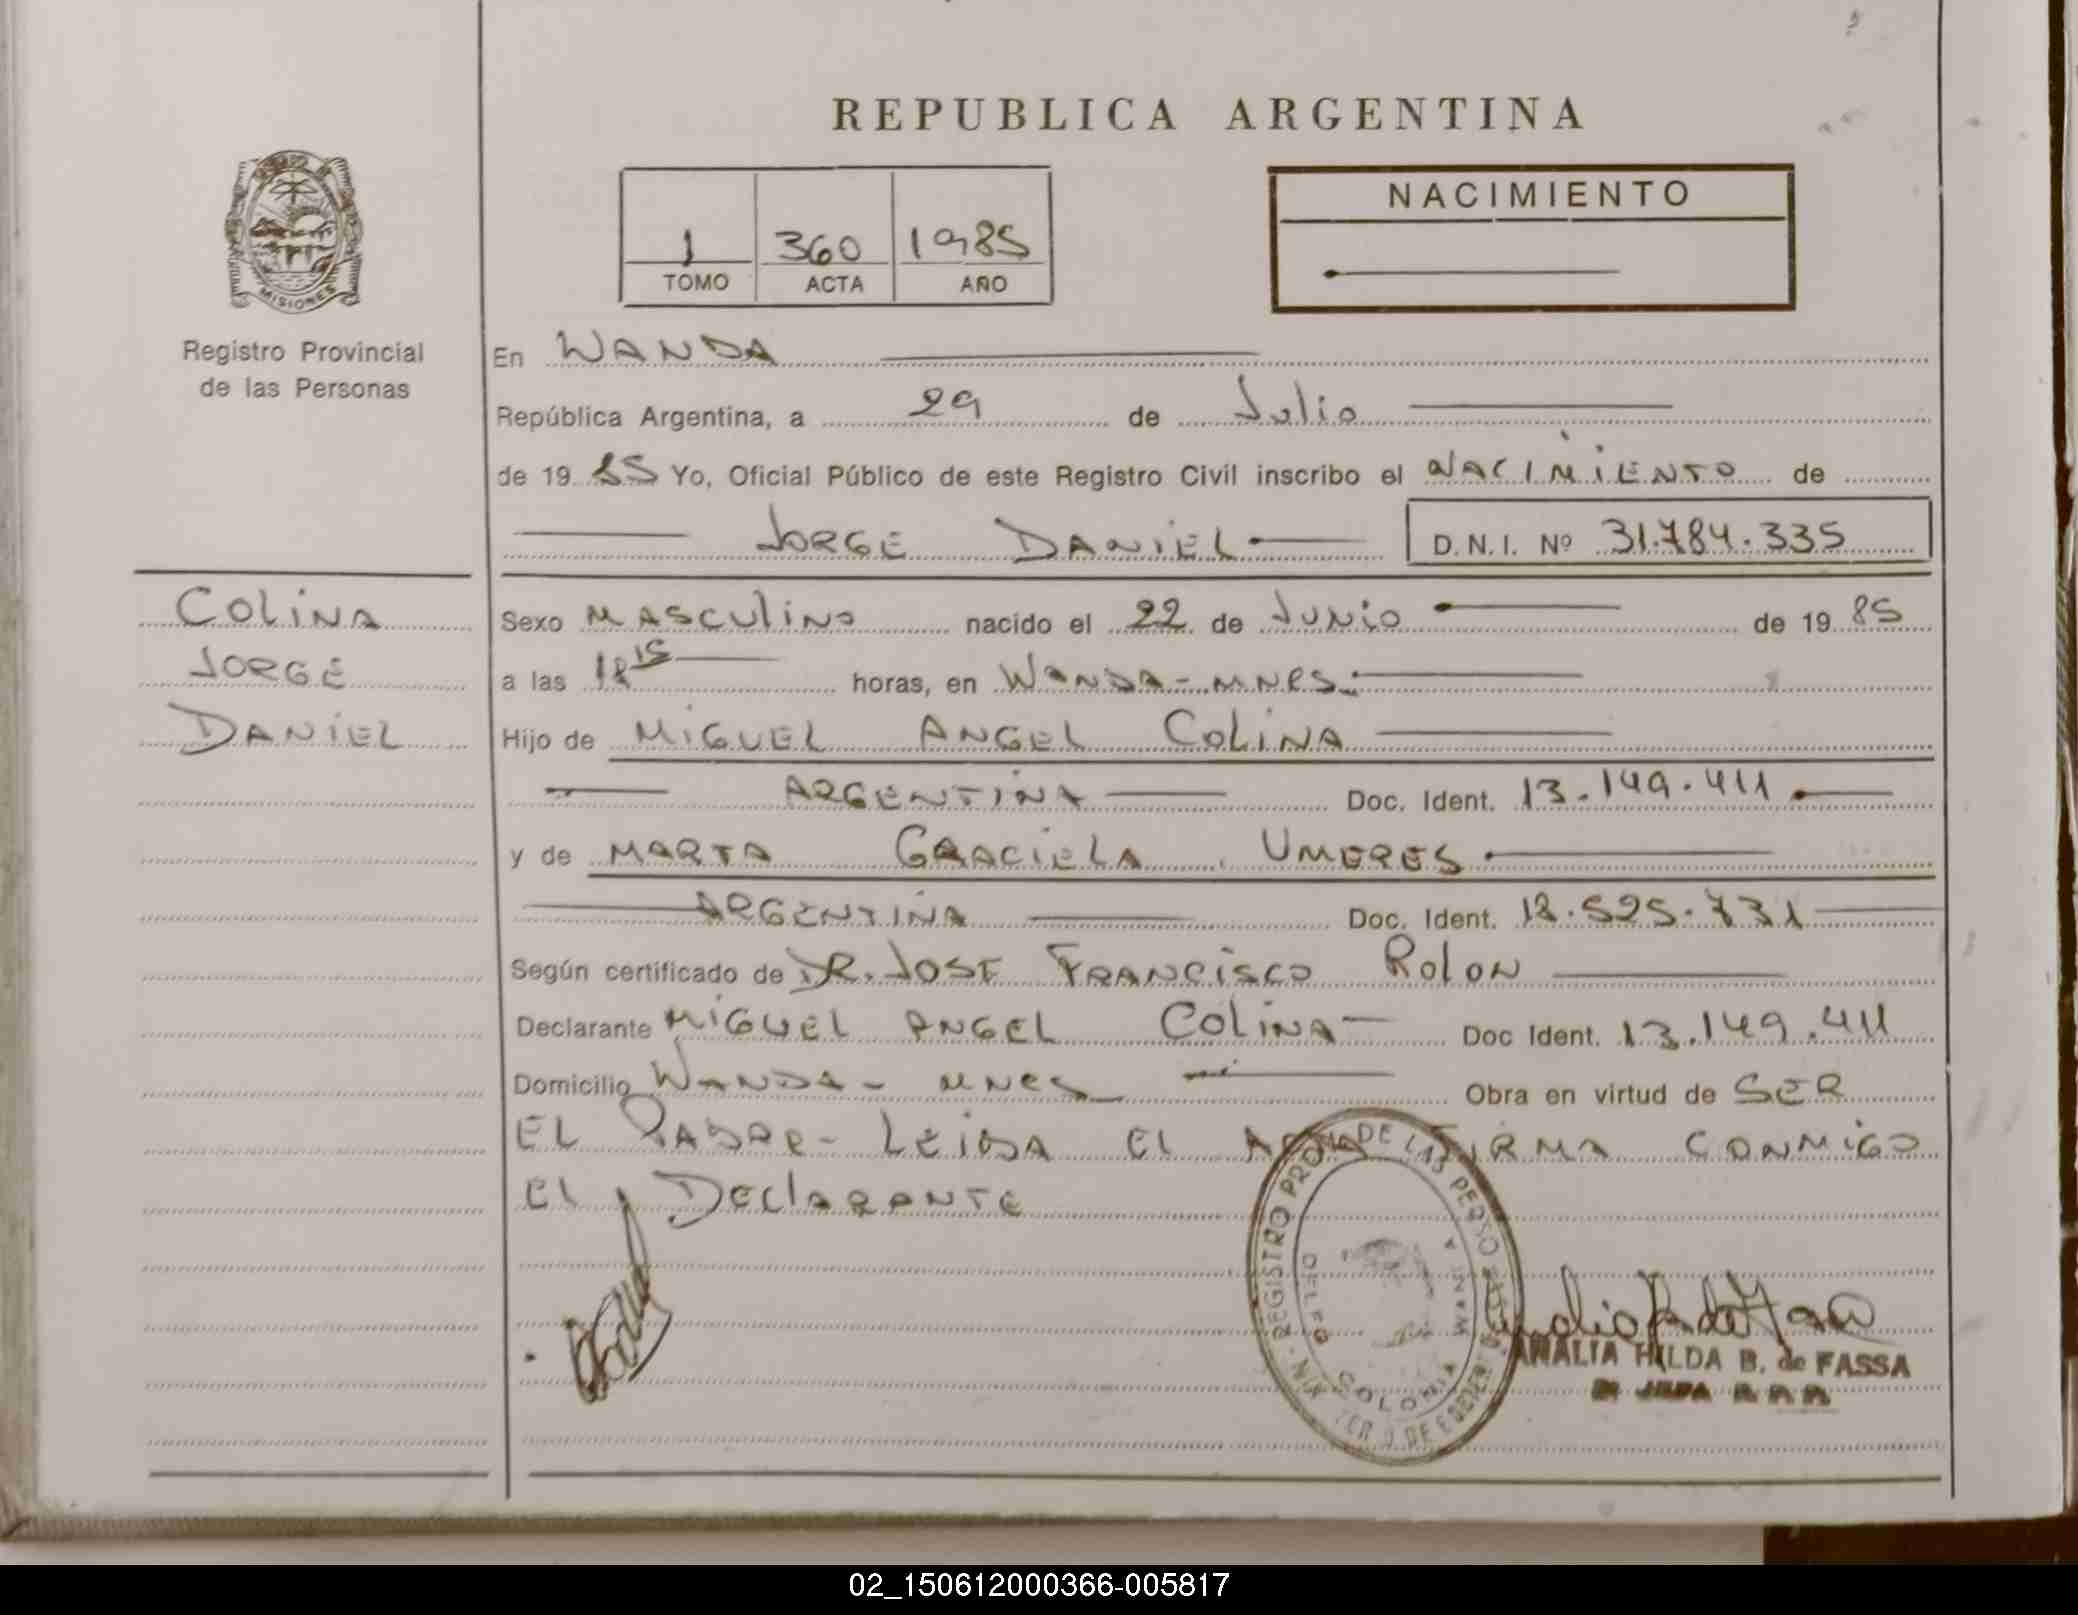 REPUBLICA ARGENTINA
MISIONES
Registro Provincial
de las Personas
1 360 1985
TOMO ACTA AÑO
NACIMIENTO
En WANDA
República Argentina, a 29 de Julio
de 19 85 Yo, Oficial Público de este Registro Civil inscribo el NACIMIENTO de
JORGE DANIEL D.N.I. Nº 31.784.335
COLINA
JORGE
DANIEL
Sexo MASCULINO nacido el 22 de JUNIO de 19 85
a las 18 15 horas, en WANDA - MNES.
Hijo de MIGUEL ANGEL COLINA
ARGENTINA Doc. Ident. 13.149.411
y de MARTA GRACIELA UMERES
ARGENTINA Doc. Ident. 18.525.731
Según certificado de DR. JOSE FRANCISCO ROLON
Declarante MIGUEL ANGEL COLINA Doc Ident. 13.149.411
Domicilio WANDA - MNES Obra en virtud de SER
EL PADRE - LEIDA EL ACTA FIRMA CONMIGO
EL DECLARANTE
REGISTRO PROV. DE LAS PERSONAS
COLONIA WANDA
AMALIA HILDA B. de FASSA
02_150612000366-005817